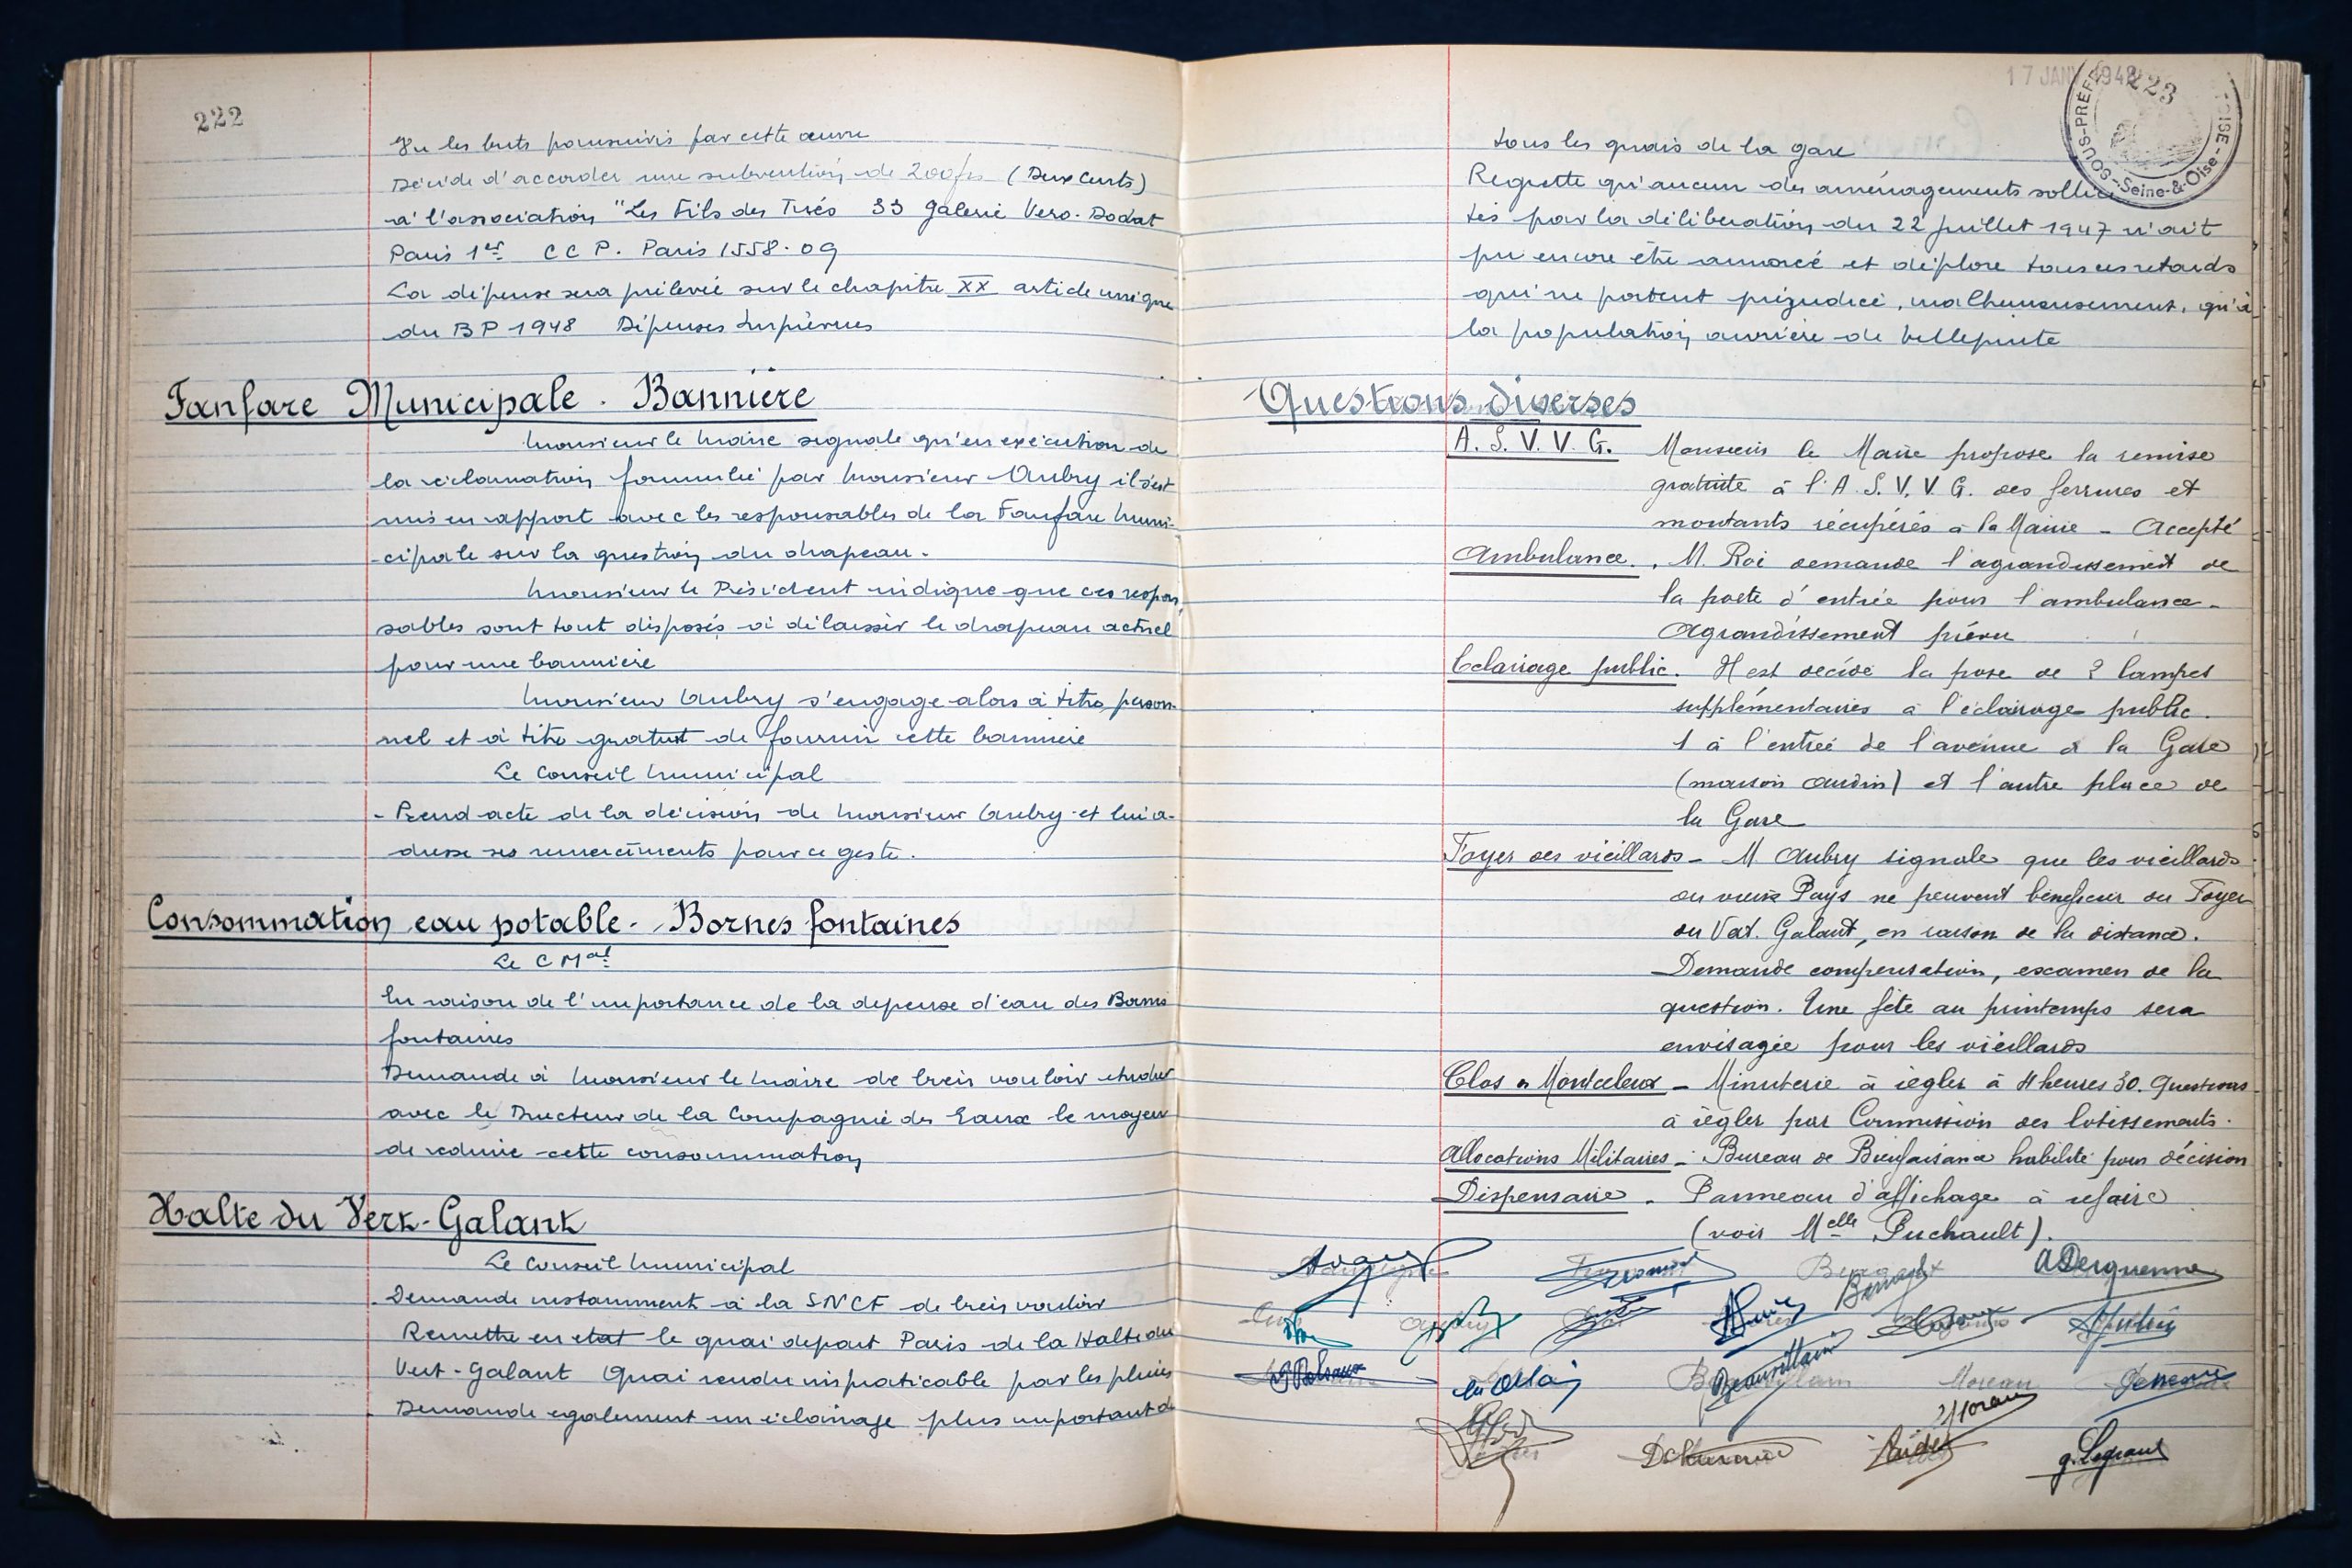 222
Vu les buts poursuivis par cette œuvre
Décide d'accorder une subvention de 200 frs (Deux Cents)
à l'association "Les Fils des Tués 33 Galerie Vero-Dodat
Paris 1er CCP. Paris 1558.09
La dépense sera prélevée sur le chapitre XX article unique
du BP 1948 Dépenses Imprévues
Fanfare Municipale. Bannière
Monsieur le Maire signale qu'en exécution de
la réclamation formulée par Monsieur Aubry il s'est
mis en rapport avec les responsables de la Fanfare Muni-
-cipale sur la question du drapeau.
Monsieur le Président indique que ces respon-
sables sont tout disposés à délaisser le drapeau actuel
pour une bannière
Monsieur Aubry s'engage alors à titre person-
nel et à titre gratuit de fournir cette bannière
Le Conseil Municipal
- Prend acte de la décision de Monsieur Aubry et lui a-
dresse ses remerciments pour ce geste.
Consommation eau potable - Bornes fontaines
Le C Mal
En raison de l'importance de la depense d'eau des Bornes
fontaines
Demande à Monsieur le Maire de bien vouloir etudier
avec le Directeur de la Compagnie des Eaux le moyen
de reduire cette consommation
Halte du Vert-Galant
Le Conseil Municipal
Demande instamment à la SNCF de bien vouloir
Remettre en etat le quai depart Paris de la Halte du
Vert-Galant Quai rendu impraticable par les pluies
Demande egalement un eclairage plus important de
17 JANV 1948
223
SOUS-PRÉFE
-Seine-&-Oise-
OISE
tous les quais de la gare
Regrette qu'aucun des aménagements sollici
tés par la déliberation du 22 juillet 1947 n'ait
pu encore être amorcé et déplore tous ces retards
qui ne portent préjudice, malheureusement, qu'à
la population ouvrière de Villepinte
Questions diverses
A. S. V. V. G. Monsieur le Maire propose la remise
gratuite à l'A. S. V. V. G. des ferrures et
montants récupérés à la Mairie - Accepté
Ambulance. M. Roi demande l'agrandissement de
la porte d'entrée pour l'ambulance -
Agrandissement prévu
Eclairage public. Il est décidé la pose de 2 lampes
supplémentaires à l'éclairage public.
1 à l'entrée de l'avenue de la Gare
(maison Audin) et l'autre place de
la Gare
Foyer des vieillards - M Aubry signale que les vieillards
du vieux Pays ne peuvent bénéficier du Foyer
du Vert. Galant, en raison de la distance.
Demande compensation, examen de la
question. Une fête au printemps sera
envisagée pour les vieillards
Clos Montceleux - Minuterie à régler à 4 heures 30. Questions
à régler par Commission des lotissements.
Allocations Militaires - Bureau de Bienfaisance habilité pour décision
Dispensaire. Panneau d'affichage à refaire
(voir Melle Puchault).
A Derquenne
Beauvillain
Moreau
g. Legrand